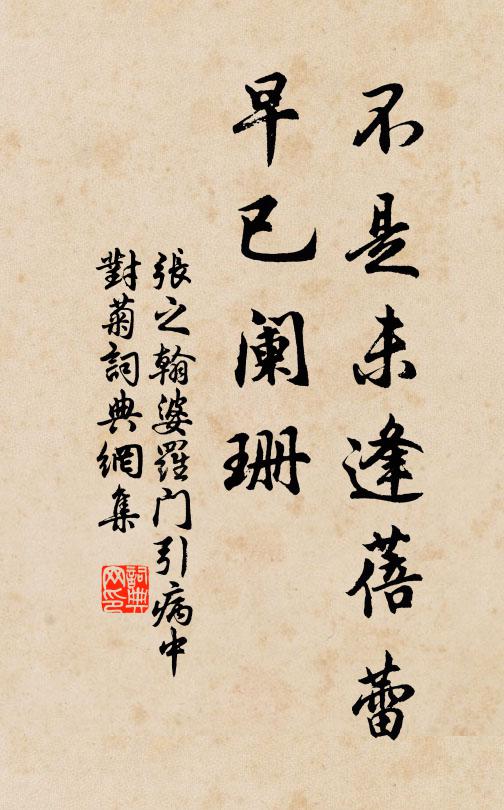 不是未逢蓓蕾
早已阑珊
張之翰婆羅门引病中
對菊詞典網集
詞典
网印